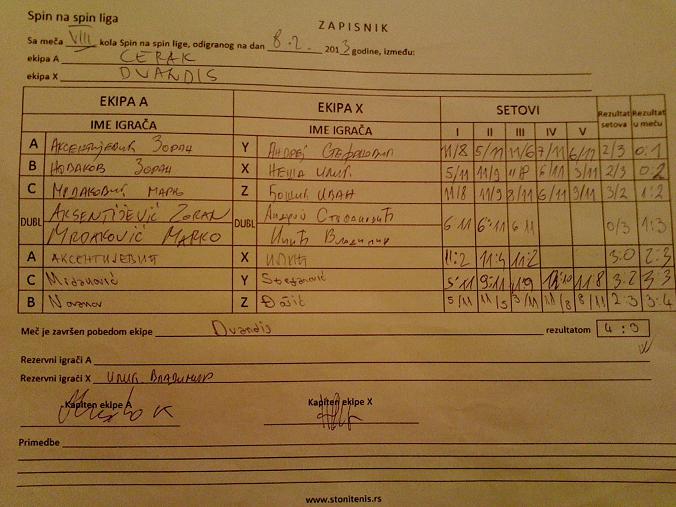 Spin na spin liga
ZAPISNIK
Sa meča VIII kola Spin na spin lige, odigranog na dan 8.2. 2013 godine, između:
ekipa A CERAK
ekipa X DVANDIS
EKIPA A EKIPA X SETOVI Rezultat setova Rezultat u meču
IME IGRAČA IME IGRAČA I II III IV V
A Аксентијевић Зоран Y Андреј Стефановић 11/8 5/11 11/6 7/11 6/11 2/3 0:1
B Новаков Зоран X Неша Илић 5/11 11/9 6/11 3/11 2/3 0:2
C Мрдаковић Марко Z Ђошић Иван 11/8 11/9 8/11 6/11 3/2 1:2
DUBL AKSENTIJEVIĆ ZORAN DUBL Андреј Стефановић 6 11 6 11 6 11 0/3 1:3
MRDAKOVIĆ MARKO Илић Владимир
A АКСЕНТИЈЕВИЋ X ИЛИЋ 11:2 11:4 11:2 3:0 2:3
C Y Stefanović 5/11 9/11 11 8 3:2 3:3
B Novakov Z Đošić 5/11 11/5 3/11 11/8 8/11 2:3 3:4
Meč je završen pobedom ekipe Dvandis rezultatom 4:3
Rezervni igrači A
Rezervni igrači X Илић Владимир
Kapiten ekipe A Kapiten ekipe X
Primedbe
www.stonitenis.rs